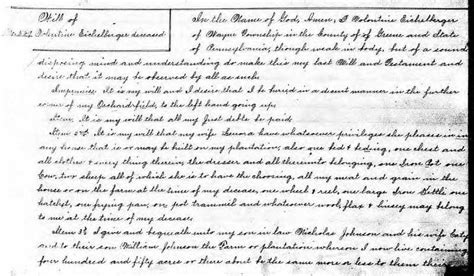 Will of
Volentine Eichelberger deceased
In the Name of God, Amen, I Volontine Eichelberger
of Wayne Township in the County of of Greene and State
of Pennsylvania, though weak in body, but of a sound
disposing mind and understanding do make this my last Will and Testament and
desire that it may be observed by all as such.
Imprimis It is my will and I desire that I be buried in a decent manner in the further
corner of my Orchard field, to the left hand going up.
Item It is my will that all my Just debts be paid
Item 2nd It is my will that my wife have whatsoever privileges she please in in
any house that is or may be built on my plantation, also one bed & beding, one chest and
all clothes & every thing therein, the dresser and all thereunto belonging, one Iron Pot one
Cow, two sheep all of which she is to have the choosing, all my meat and grain in the
house or on the farm at the time of my decease, one wheel & reel, one large Iron Kettle one
hatchet, one frying pan, or pot trammil and whatsoever wool, flax & linsey may belong
to me at the time of my decease.
Item 3d I give and bequeath unto my son in law Nicholas Johnson and his wife Caty
and to their son William Johnson the Farm or plantation whereon I now live containing
four hundred and fifty acres or there about to be the same more or less to them their